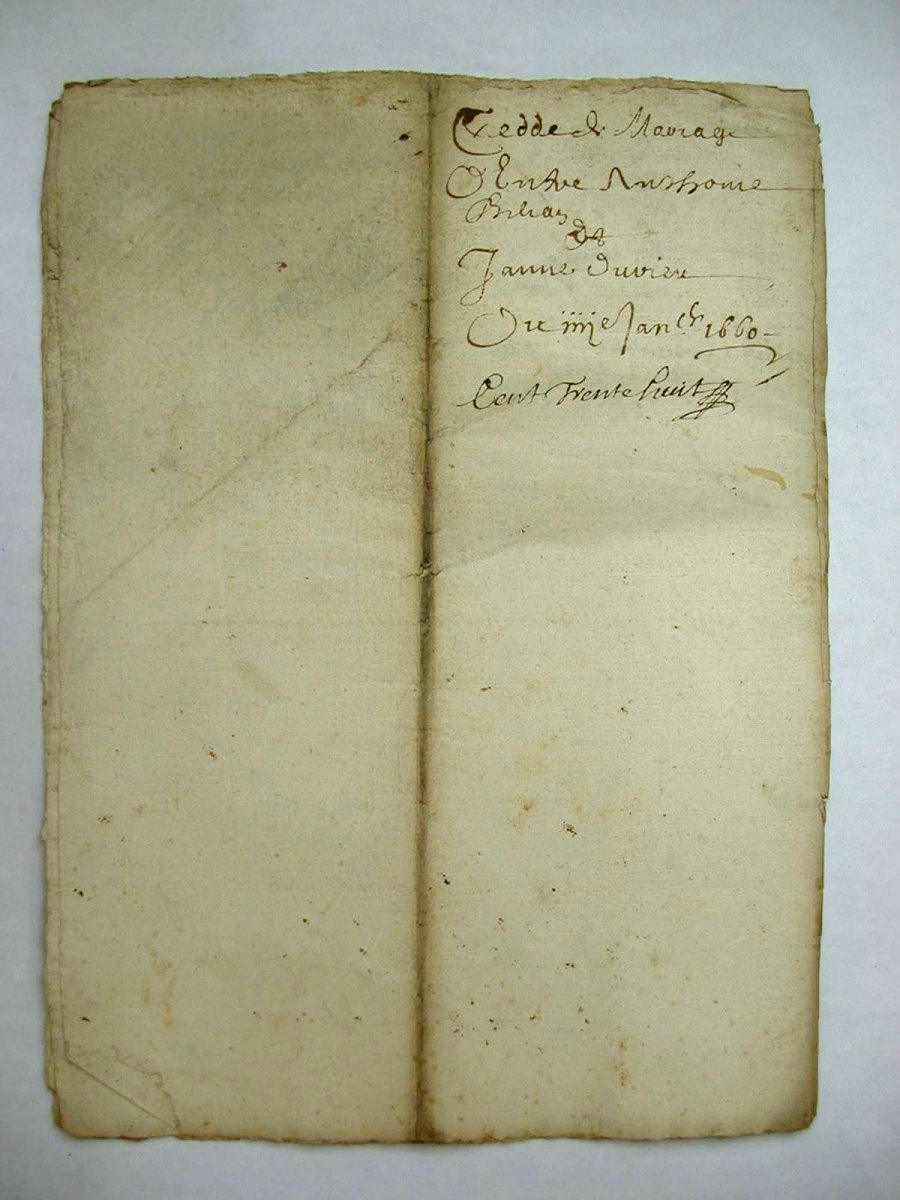 Cedde de Mariage
D'Entre Anthoine
&
Janne Duvieu
Du iiije Janer 1660
Cent Trente huit